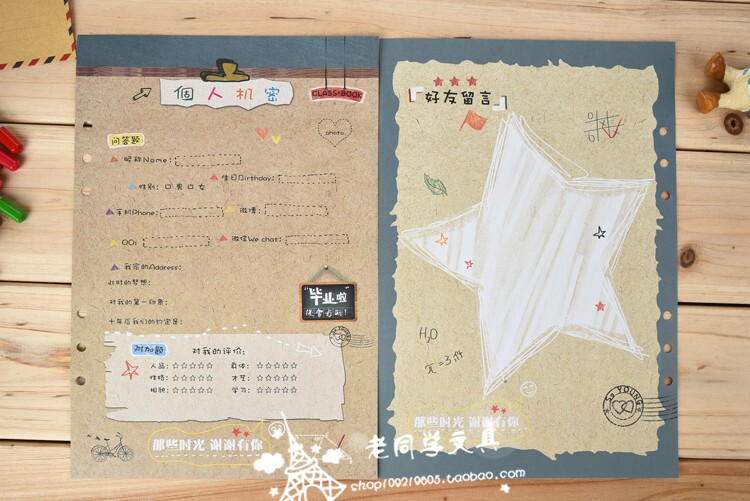 個人机密
CLASS★BOOK
photo
问答题
昵称Name:
生日Birthday:
性别: 男 女
手机Phone:
微博:
QQ:
微信We chat:
我家的Address:
此时的梦想:
对我的第一印象:
十年后我们的约定是:
"毕业啦"
附加题
对我的评价:
人品: ☆☆☆☆☆ 身体: ☆☆☆☆☆
性格: ☆☆☆☆☆ 才艺: ☆☆☆☆☆
相貌: ☆☆☆☆☆ 学习: ☆☆☆☆☆
那些时光 谢谢有你
好友留言
H₂O
So YOUNG
那些时光 谢谢有你
老同学文具
shop109219805.taobao.com